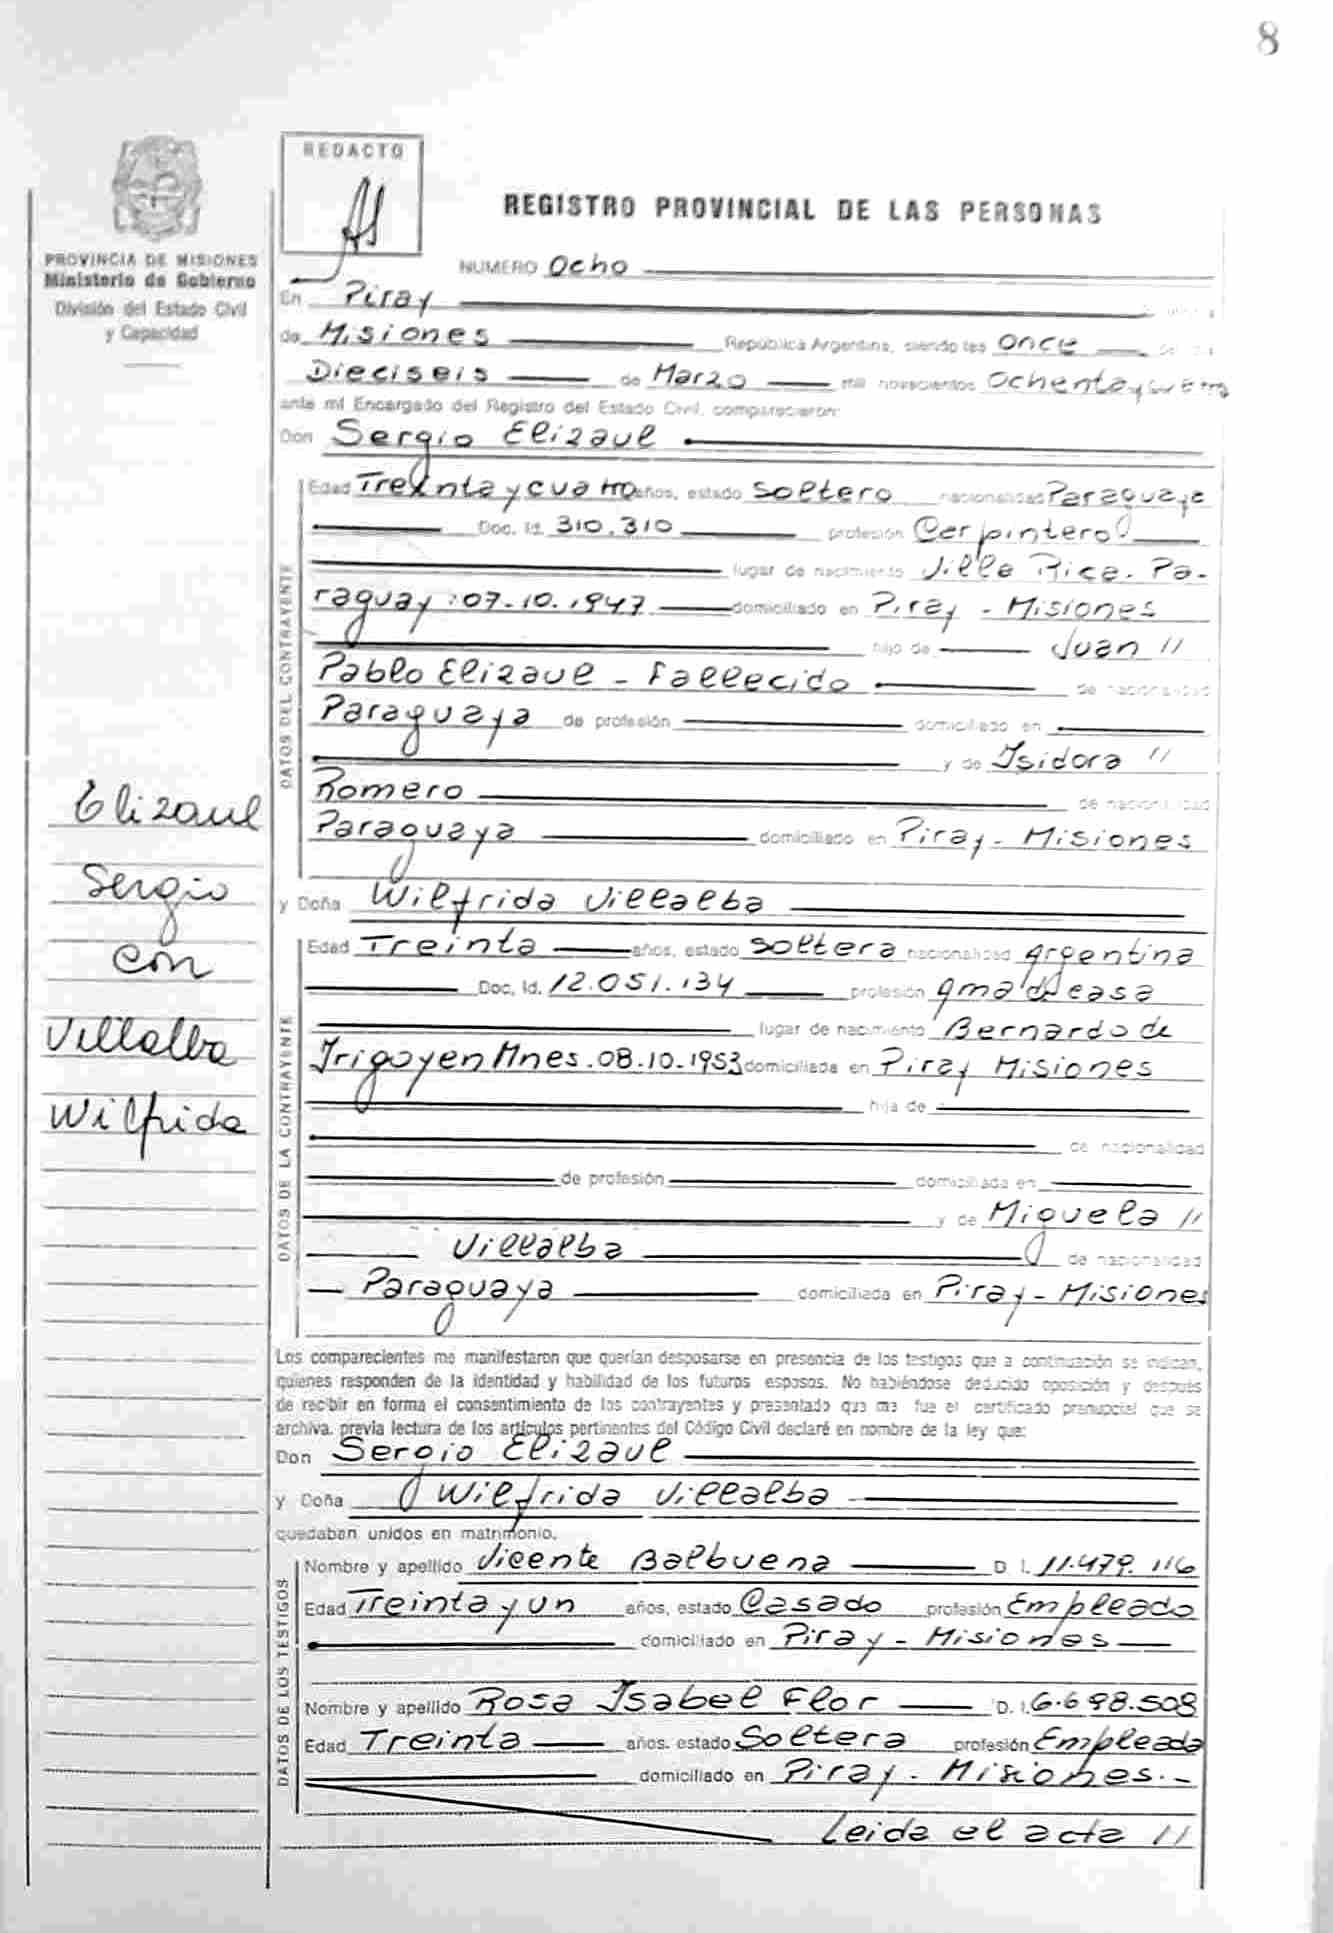 8
REDACTO
REGISTRO PROVINCIAL DE LAS PERSONAS
PROVINCIA DE MISIONES
Ministerio de Gobierno
División del Estado Civil
y Capacidad
NUMERO Ocho
En Piray
de Misiones República Argentina, siendo las Once
Dieciseis de Marzo mil novecientos Ochenta y
ante mi Encargado del Registro del Estado Civil, comparecieron:
Don Sergio Elizaul
DATOS DEL CONTRAYENTE
Edad Treinta y cuatro años, estado Soltero nacionalidad Paraguaya
Doc. Id. 310.310 profesión Carpintero
lugar de nacimiento Villa Rica. Pa-
raguay: 07-10.1947 domiciliado en Piray - Misiones
hijo de Juan //
Pablo Elizaul - Fallecido de nacionalidad
Paraguaya de profesión domiciliado en
y de Isidora //
Romero de nacionalidad
Paraguaya domiciliado en Piray - Misiones
Elizaul
Sergio
con
Villalba
Wilfrida
y Doña Wilfrida Villalba
DATOS DE LA CONTRAYENTE
Edad Treinta años, estado Soltera nacionalidad Argentina
Doc. Id. 12.051.134 profesión Ama de casa
lugar de nacimiento Bernardo de
Irigoyen Mnes. 08.10.1953 domiciliada en Piray Misiones
hija de
de nacionalidad
de profesión domiciliada en
y de Miguela //
Villalba de nacionalidad
Paraguaya domiciliada en Piray - Misiones
Los comparecientes me manifestaron que querían desposarse en presencia de los testigos que a continuación se indican,
quienes responden de la identidad y habilidad de los futuros esposos. No habiéndose deducido oposición y después
de recibir en forma el consentimiento de los contrayentes y presentado que me fue el certificado prenupcial que se
archiva, previa lectura de los artículos pertinentes del Código Civil declaré en nombre de la ley que:
Don Sergio Elizaul
y Doña Wilfrida Villalba
quedaban unidos en matrimonio.
DATOS DE LOS TESTIGOS
Nombre y apellido Vicente Balbuena D. I. 11.479.116
Edad Treinta y un años, estado Casado profesión Empleado
domiciliado en Piray - Misiones
Nombre y apellido Rosa Isabel Flor D. I. 6.698.508
Edad Treinta años. estado Soltera profesión Empleada
domiciliado en Piray - Misiones.-
Leida el acta //